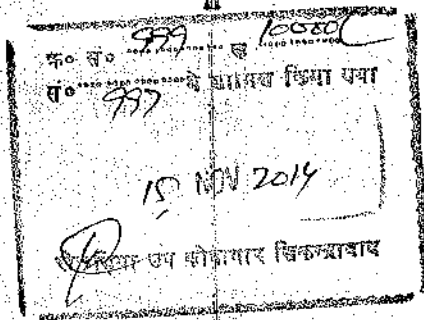 क्र० सं० 999 व 10000
सं० 997 में शामिल किया गया
15 NOV 2014
उप कोषागार सिकन्द्राबाद